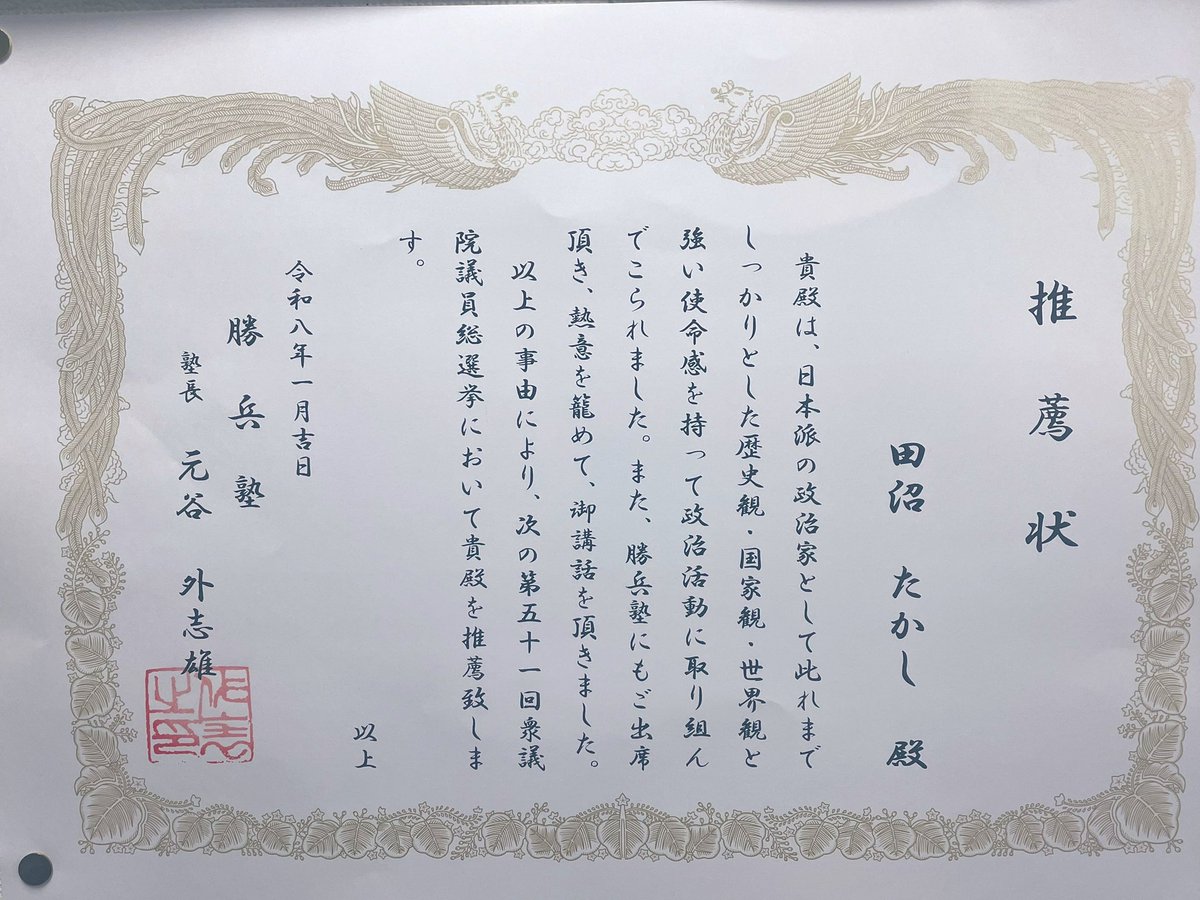 推薦状
田沼 たかし 殿
貴殿は、日本派の政治家として此れまで
しっかりとした歴史観・国家観・世界観と
強い使命感を持って政治活動に取り組ん
でこられました。また、勝兵塾にもご出席
頂き、熱意を籠めて、御講話を頂きました。
以上の事由により、次の第五十一回衆議
院議員総選挙において貴殿を推薦致しま
す。
以上
令和八年一月吉日
勝兵塾
塾長 元谷 外志雄